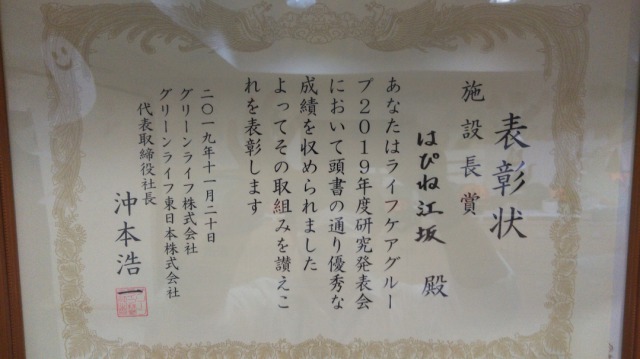 表彰状
施設長賞
はぴね江坂 殿
あなたはライフケアグルー
プ2019年度研究発表会
において頭書の通り優秀な
成績を収められました
よってその取組みを讃えこ
れを表彰します
二〇一九年十一月二十日
グリーンライフ株式会社
グリーンライフ東日本株式会社
代表取締役社長
沖本浩一